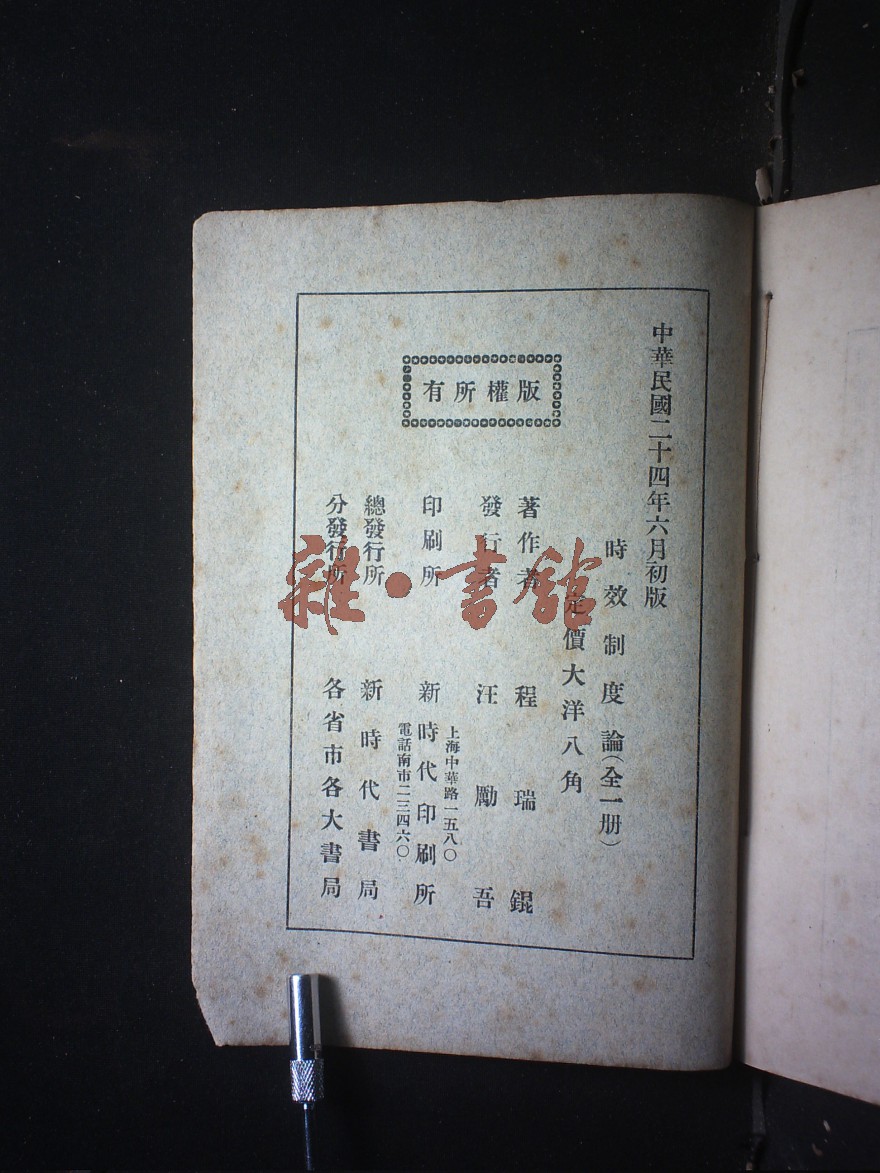 中華民國二十四年六月初版
時效制度論（全一册）
定價大洋八角
版權所有
著作者 程瑞錕
發行者 汪勵吾
上海中華路一五八〇
印刷所 新時代印刷所
電話南市二三四六〇
總發行所 新時代書局
分發行所 各省市各大書局
雜·書館